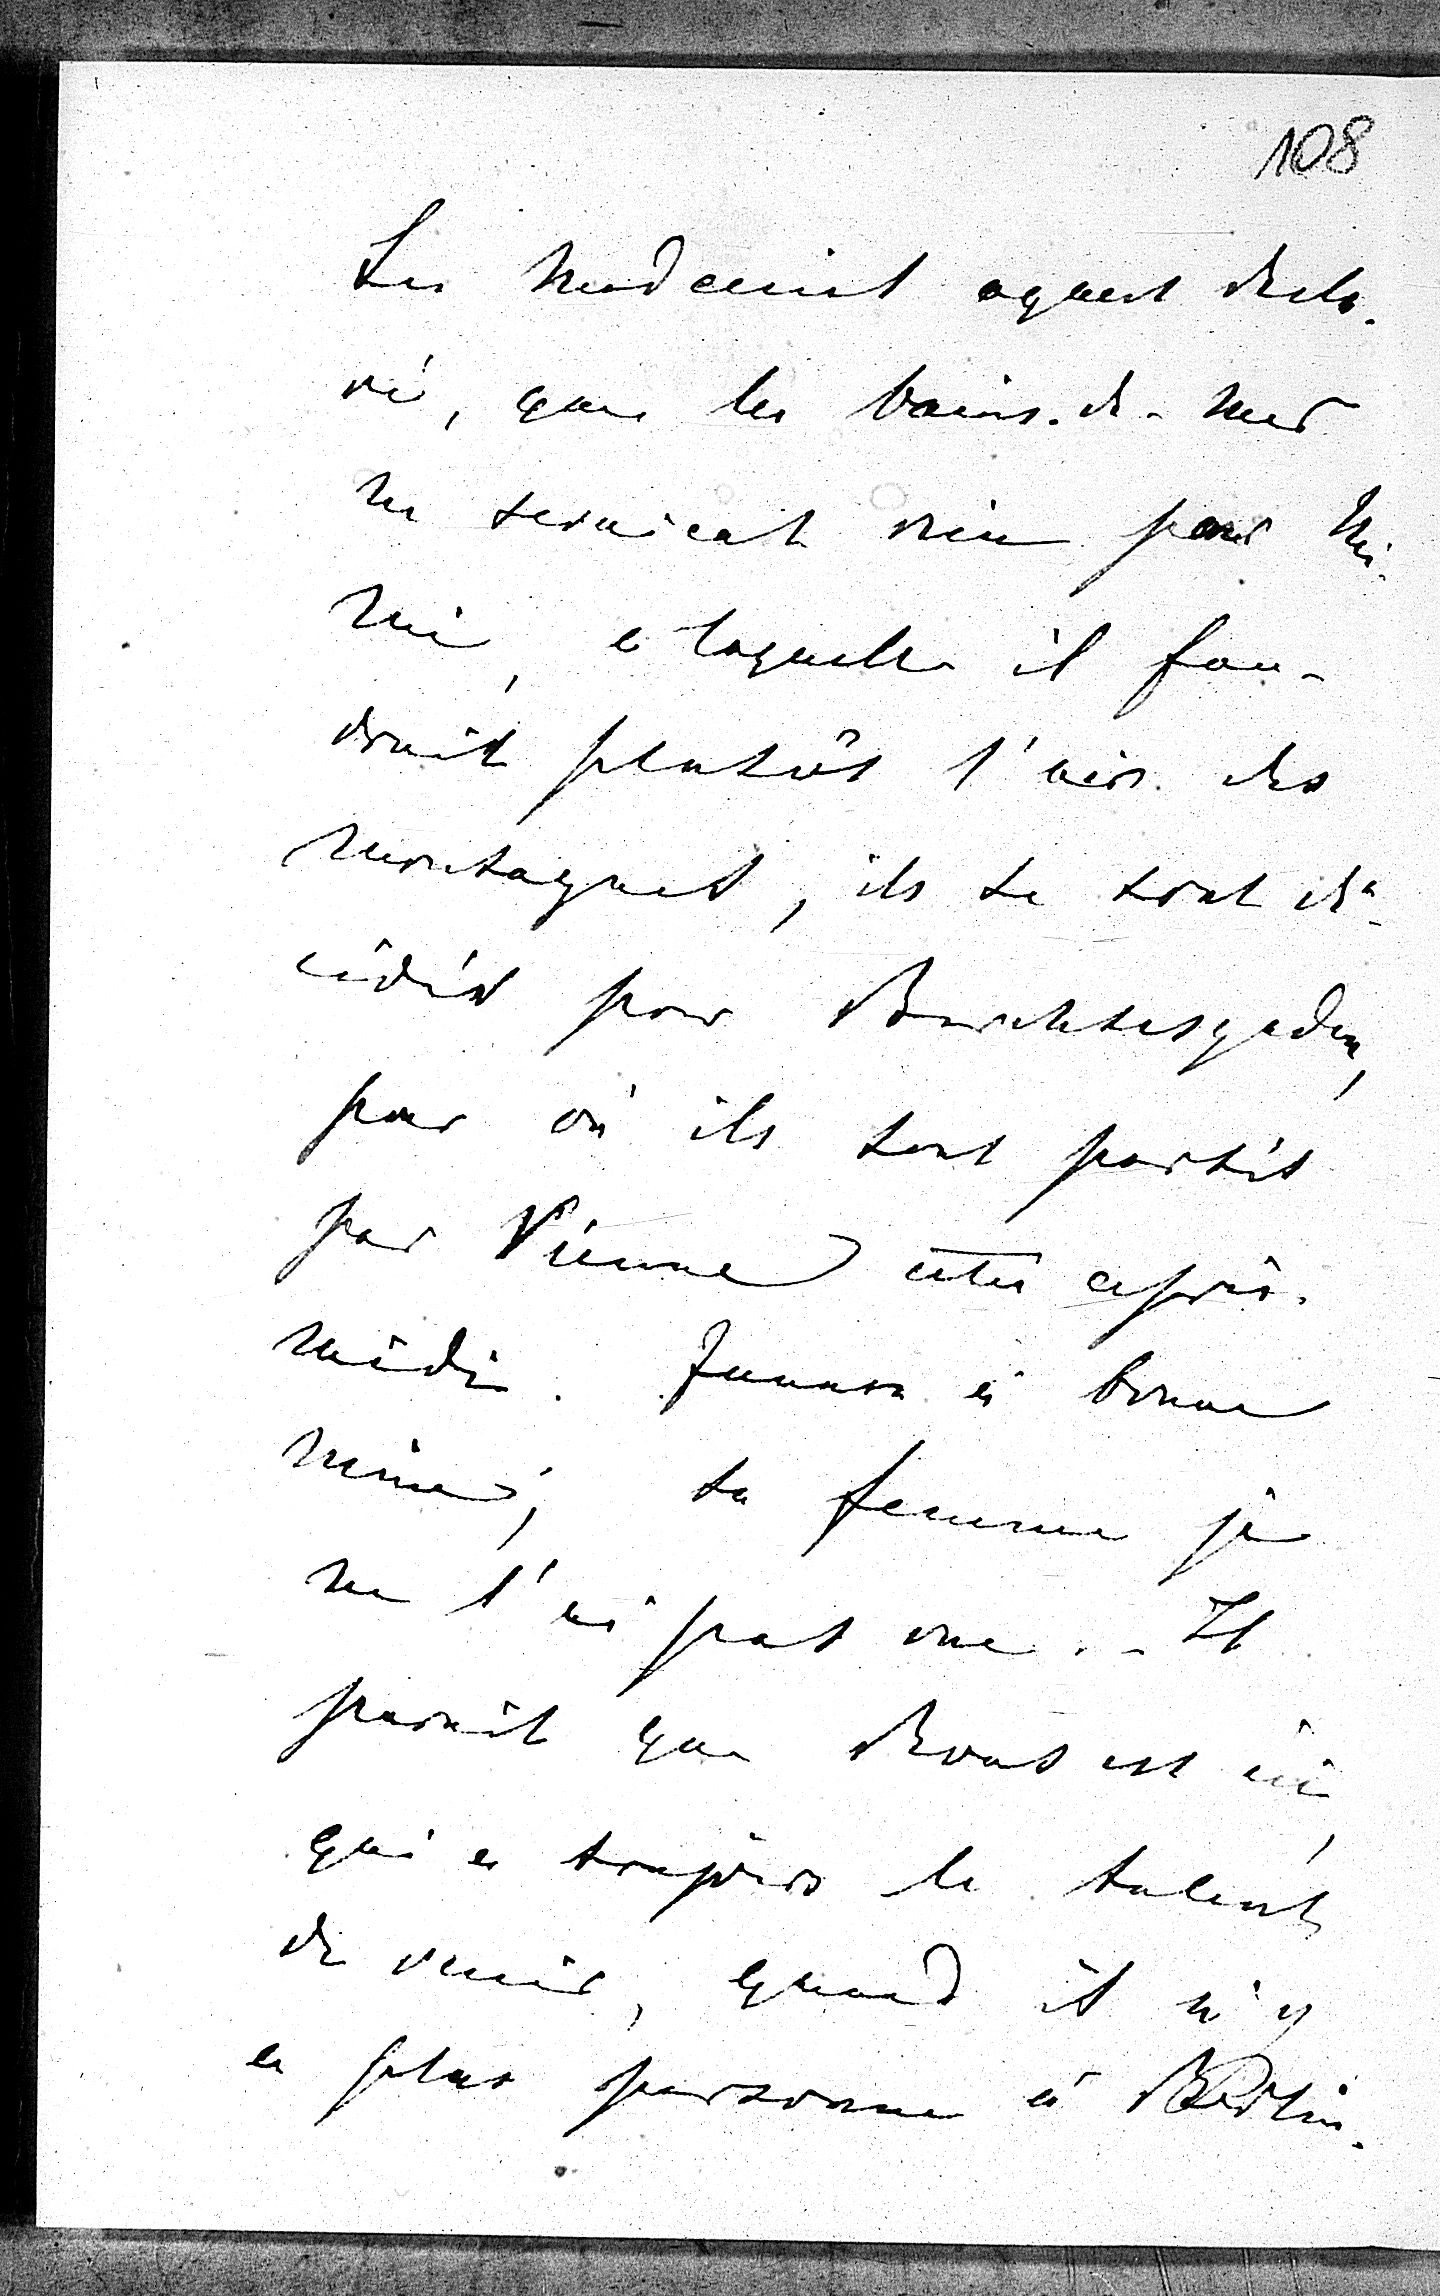 108
Les medecins ayant decla-
ré, que les bains-de-mer
ne servirent rien pour Mi-
mi, a laquelle il fau-
drait plutôt l'air des
montagnes, ils se sont dé-
cidés pour Berchtesgaden,
pour où ils sont partis
par Vienne cette après-
midi. a bonne
mine; sa femme je
ne l'ai pas vue. - Il
parait que est ici,
qui a toujours le talent,
de venir, quand il n'y
a plus personne à Berlin.